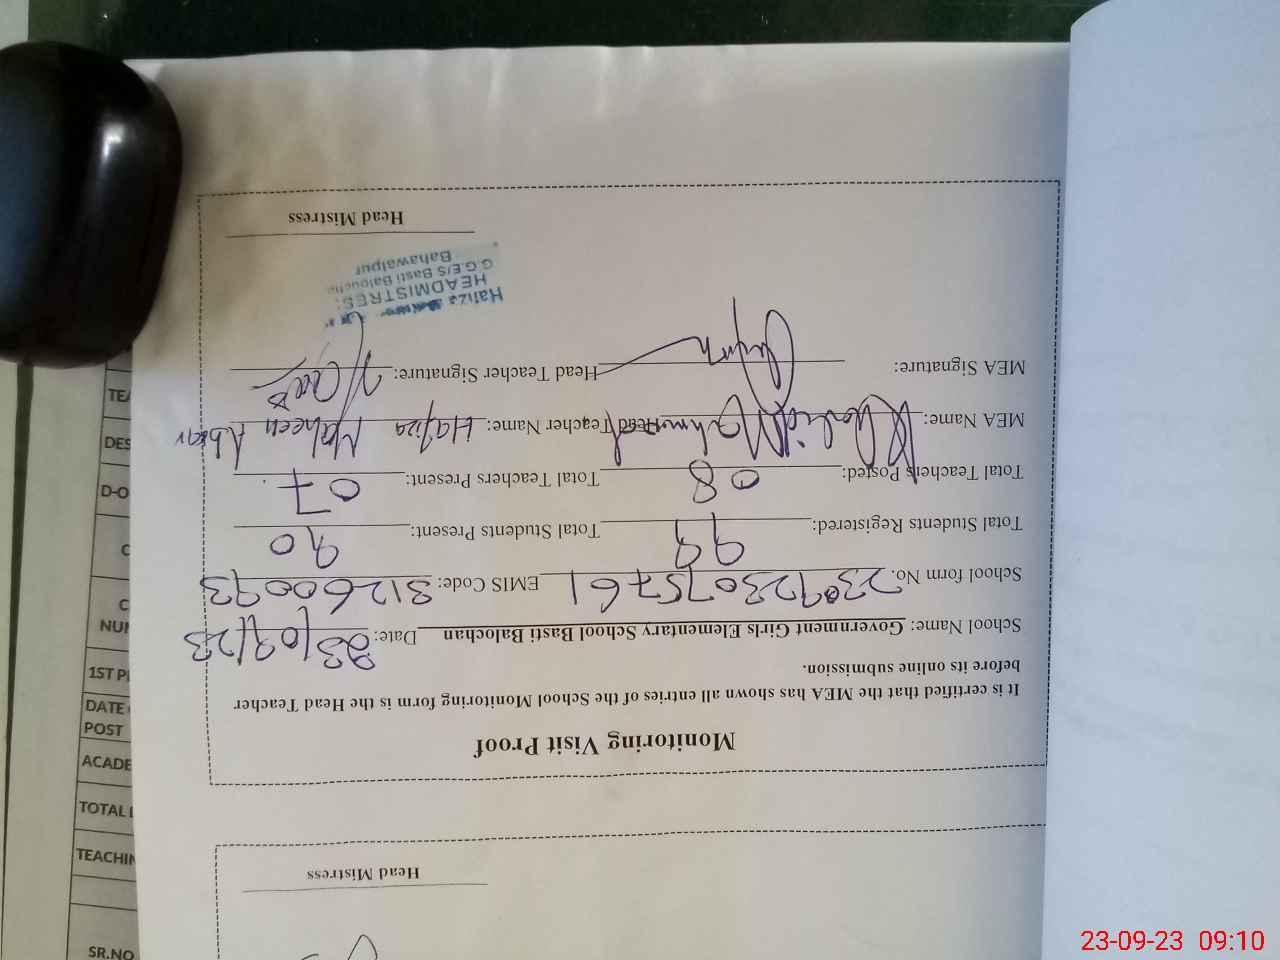 Monitoring Visit Proof
It is certified that the MEA has shown all entries of the School Monitoring form is the Head Teacher
before its online submission.
School Name: Government Girls Elementary School Basti Balochan Date: 23/09/23
School form No. 230923075761 EMIS Code: 31260093
Total Students Registered: 99 Total Students Present: 90
Total Teachers Posted: 08 Total Teachers Present: 07
MEA Name: Khalid Mahmood Head Teacher Name: Hafiza Maheen Abrar
MEA Signature: Head Teacher Signature:
Hafiza
HEADMISTRES
G.G.E/S Basti Balochan
Bahawalpur
Head Mistress
Head Mistress
TEA
DES
D-O
C
C
NUM
1ST P
DATE
POST
ACADE
TOTAL
TEACHIN
SR.NO
23-09-23 09:10